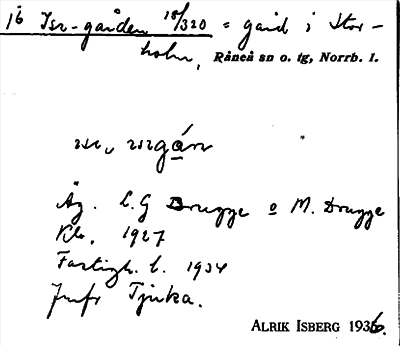 16 Isr-gården 10/320 = gård i Stor-
holm, Råneå sn o. tg, Norrb. l.
Äg. C. G Drugge o M. Drugge
Kb. 1927
Fastigh. l. 1934
Jmfr Tjuka.
ALRIK ISBERG 1936.